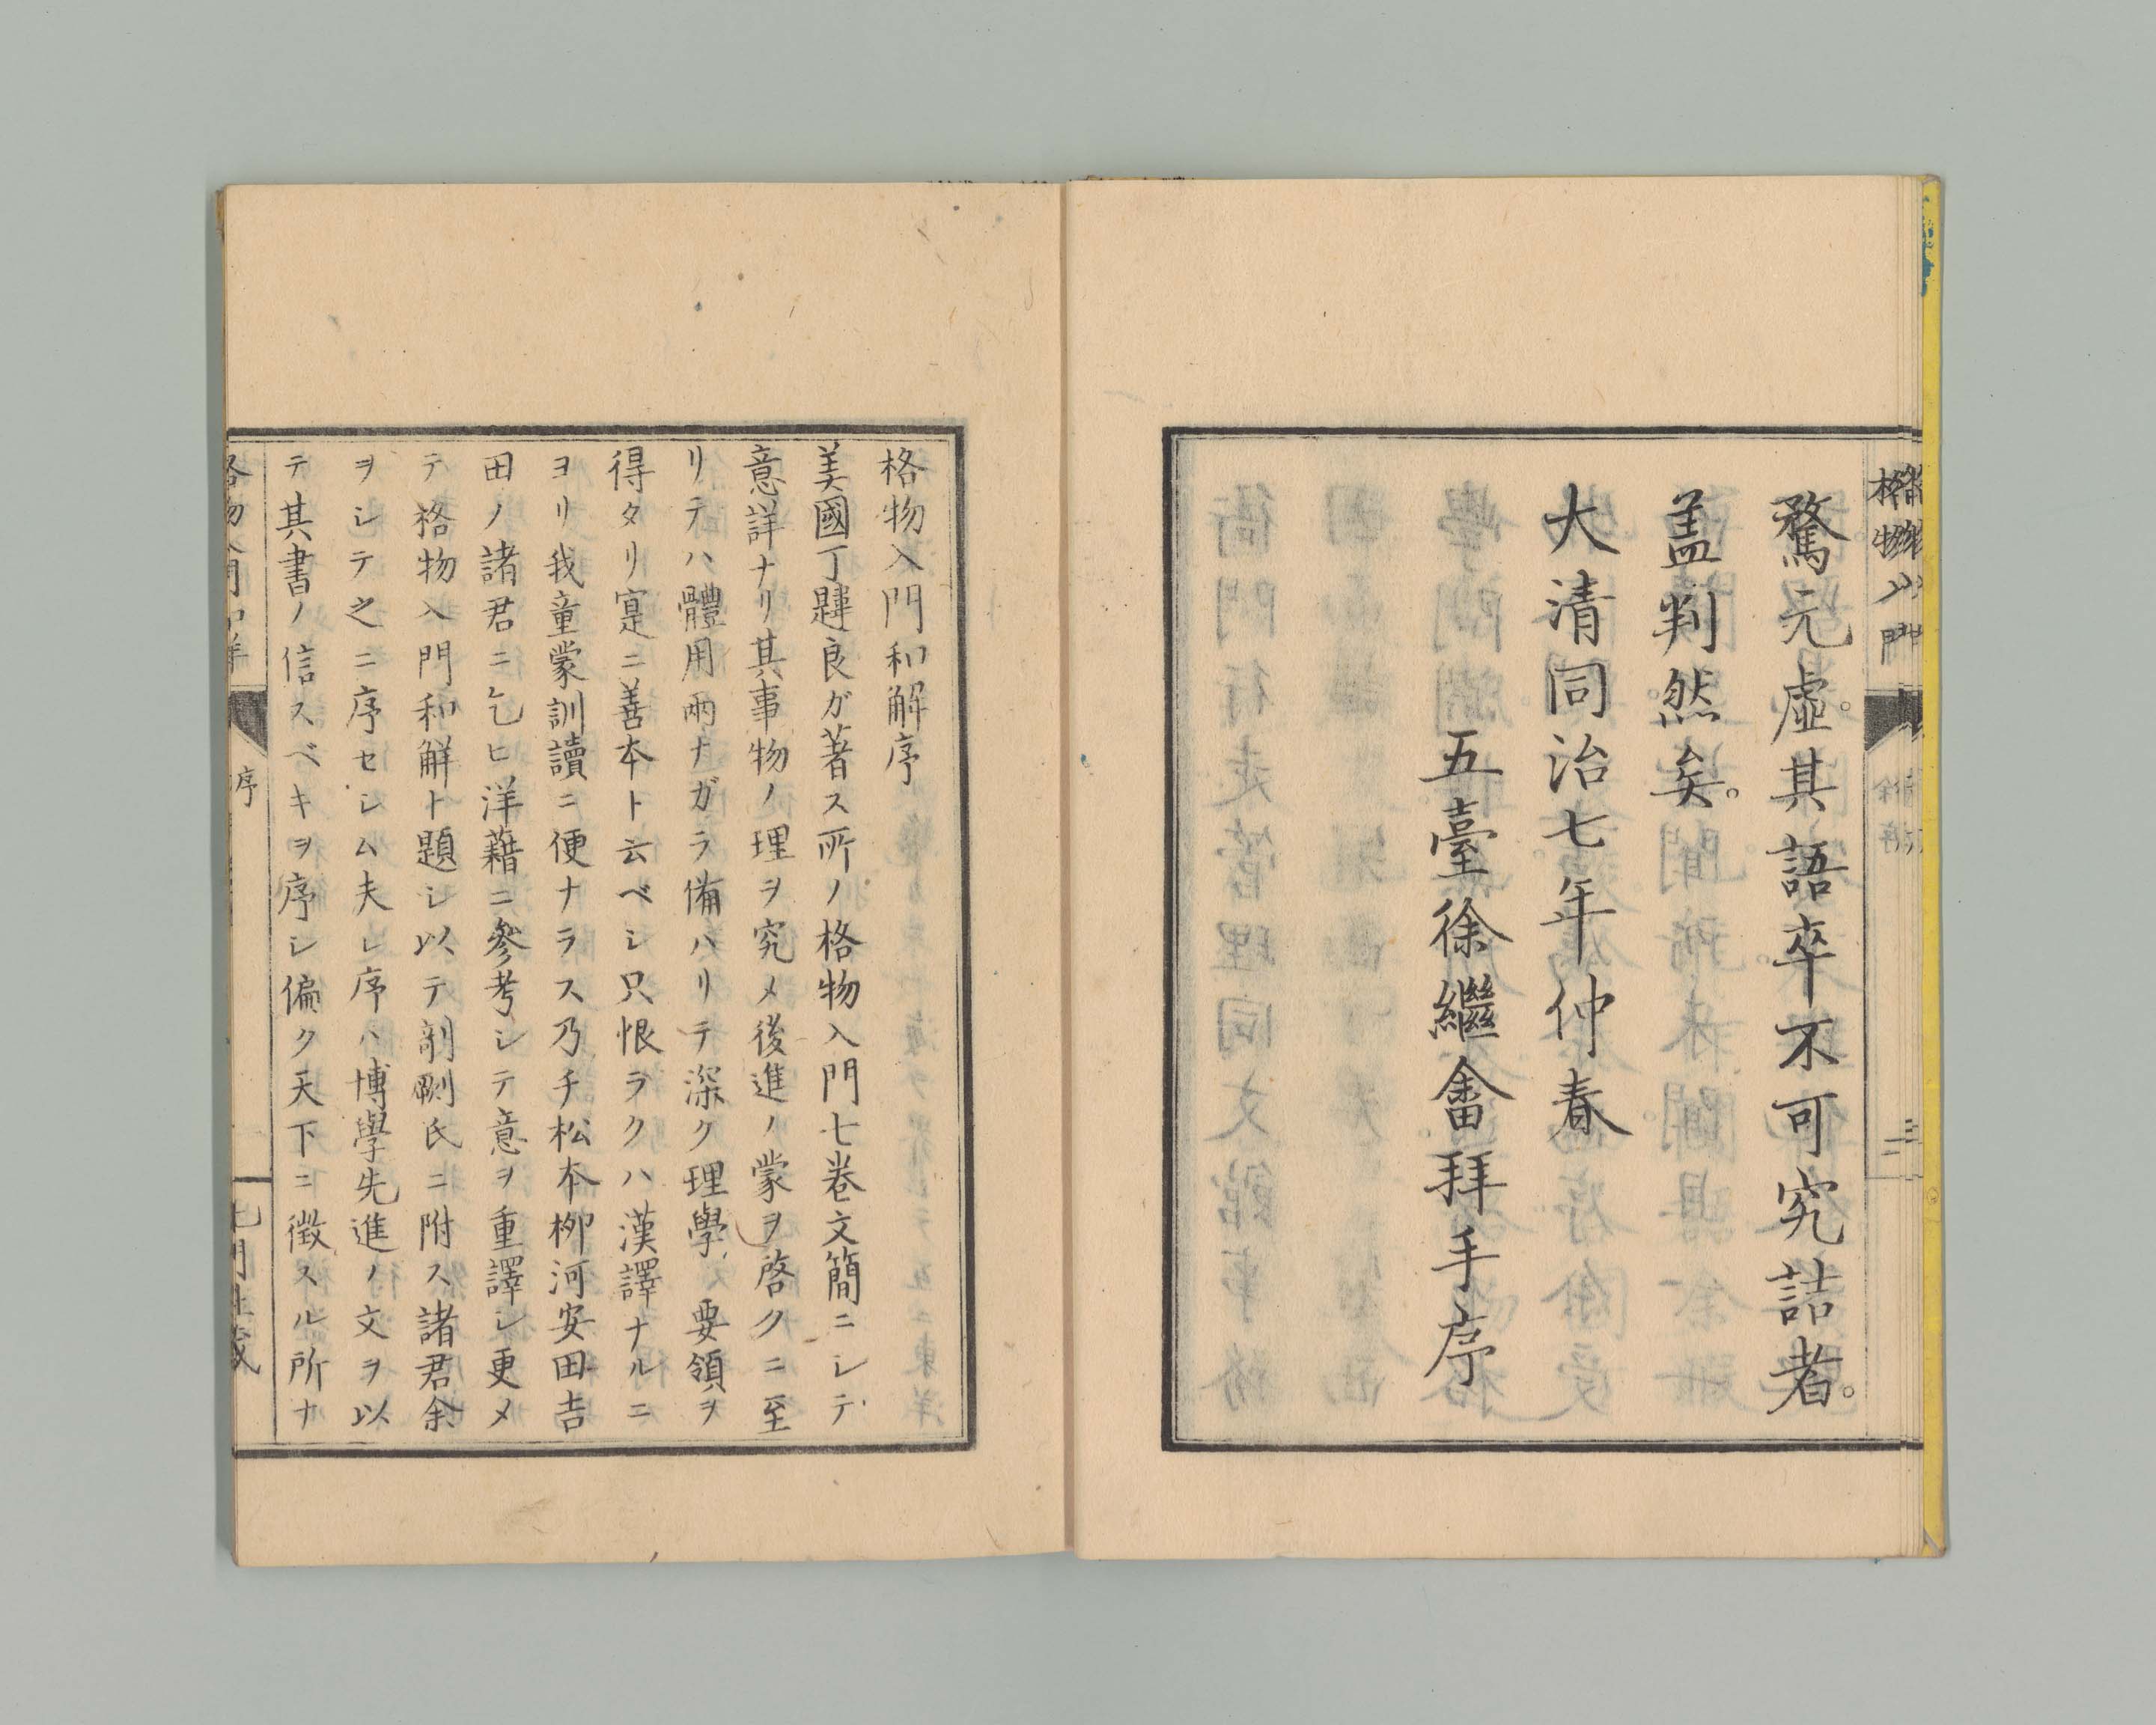 格物入門
徐序
三
騖元虛。其語卒不可究詰者。
盖判然矣。
大清同治七年仲春
五臺徐繼畬拜手序
格物入門和解序
美國丁韙良ガ著ス所ノ格物入門七巻文簡ニシテ
意詳ナリ其事物ノ理ヲ究メ後進ノ蒙ヲ啓クニ至
リテハ體用兩ナガラ備ハリテ深ク理學ノ要領ヲ
得タリ寔ニ善本ト云ベシ只恨ラクハ漢譯ナルニ
ヨリ我童蒙訓讀ニ便ナラス乃チ松本栁河安田吉
田ノ諸君ニ乞ヒ洋藉ニ參考シテ意ヲ重譯シ更メ
テ格物入門和解ト題シ以テ剞劂氏ニ附ス諸君余
ヲシテ之ニ序セシム夫レ序ハ博學先進ノ文ヲ以
テ其書ノ信スベキヲ序シ偏ク天下ニ徴スル所ナ
格物入門和解
序
北門社藏